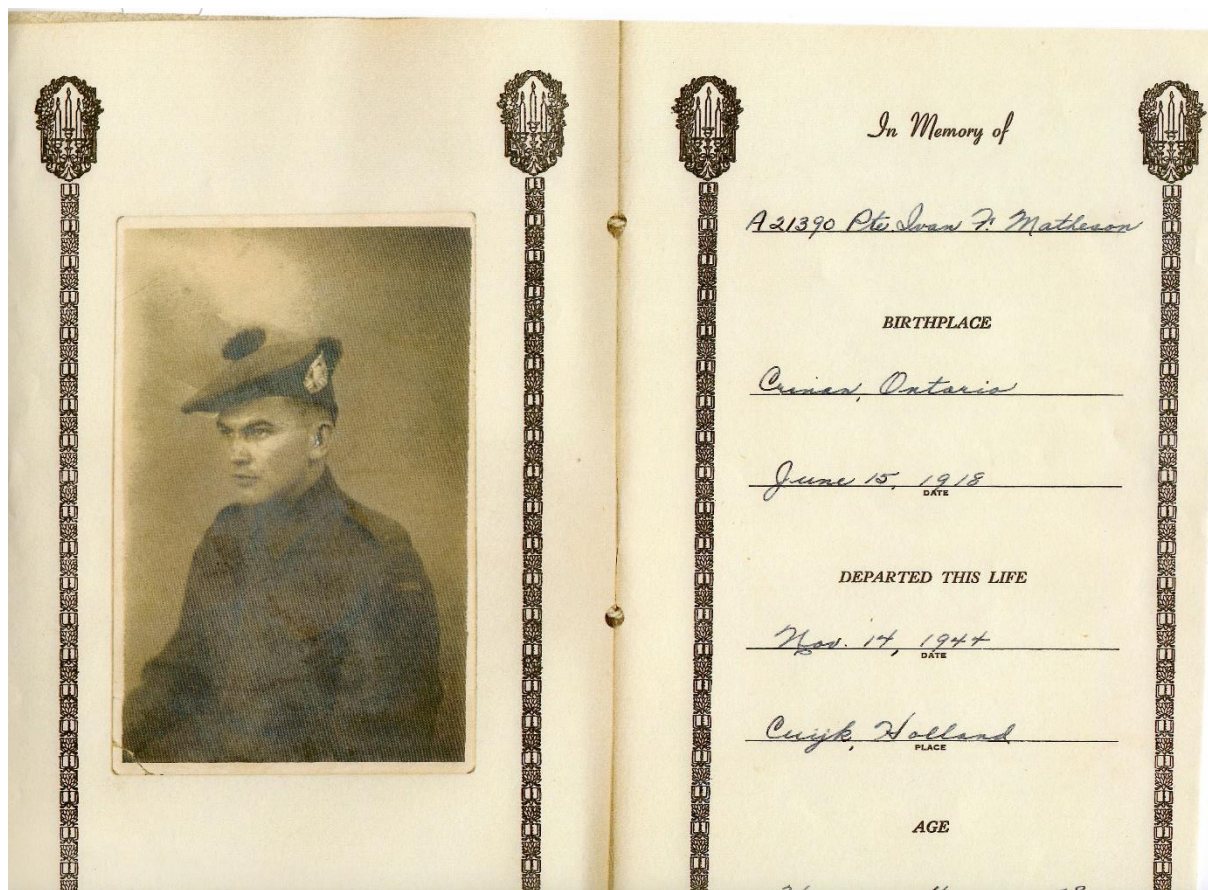 In Memory of
A21390 Pte. Ivan F. Matheson
BIRTHPLACE
Crinan, Ontario
June 15, 1918
DATE
DEPARTED THIS LIFE
Nov. 14, 1944
DATE
Cuijk, Holland
PLACE
AGE